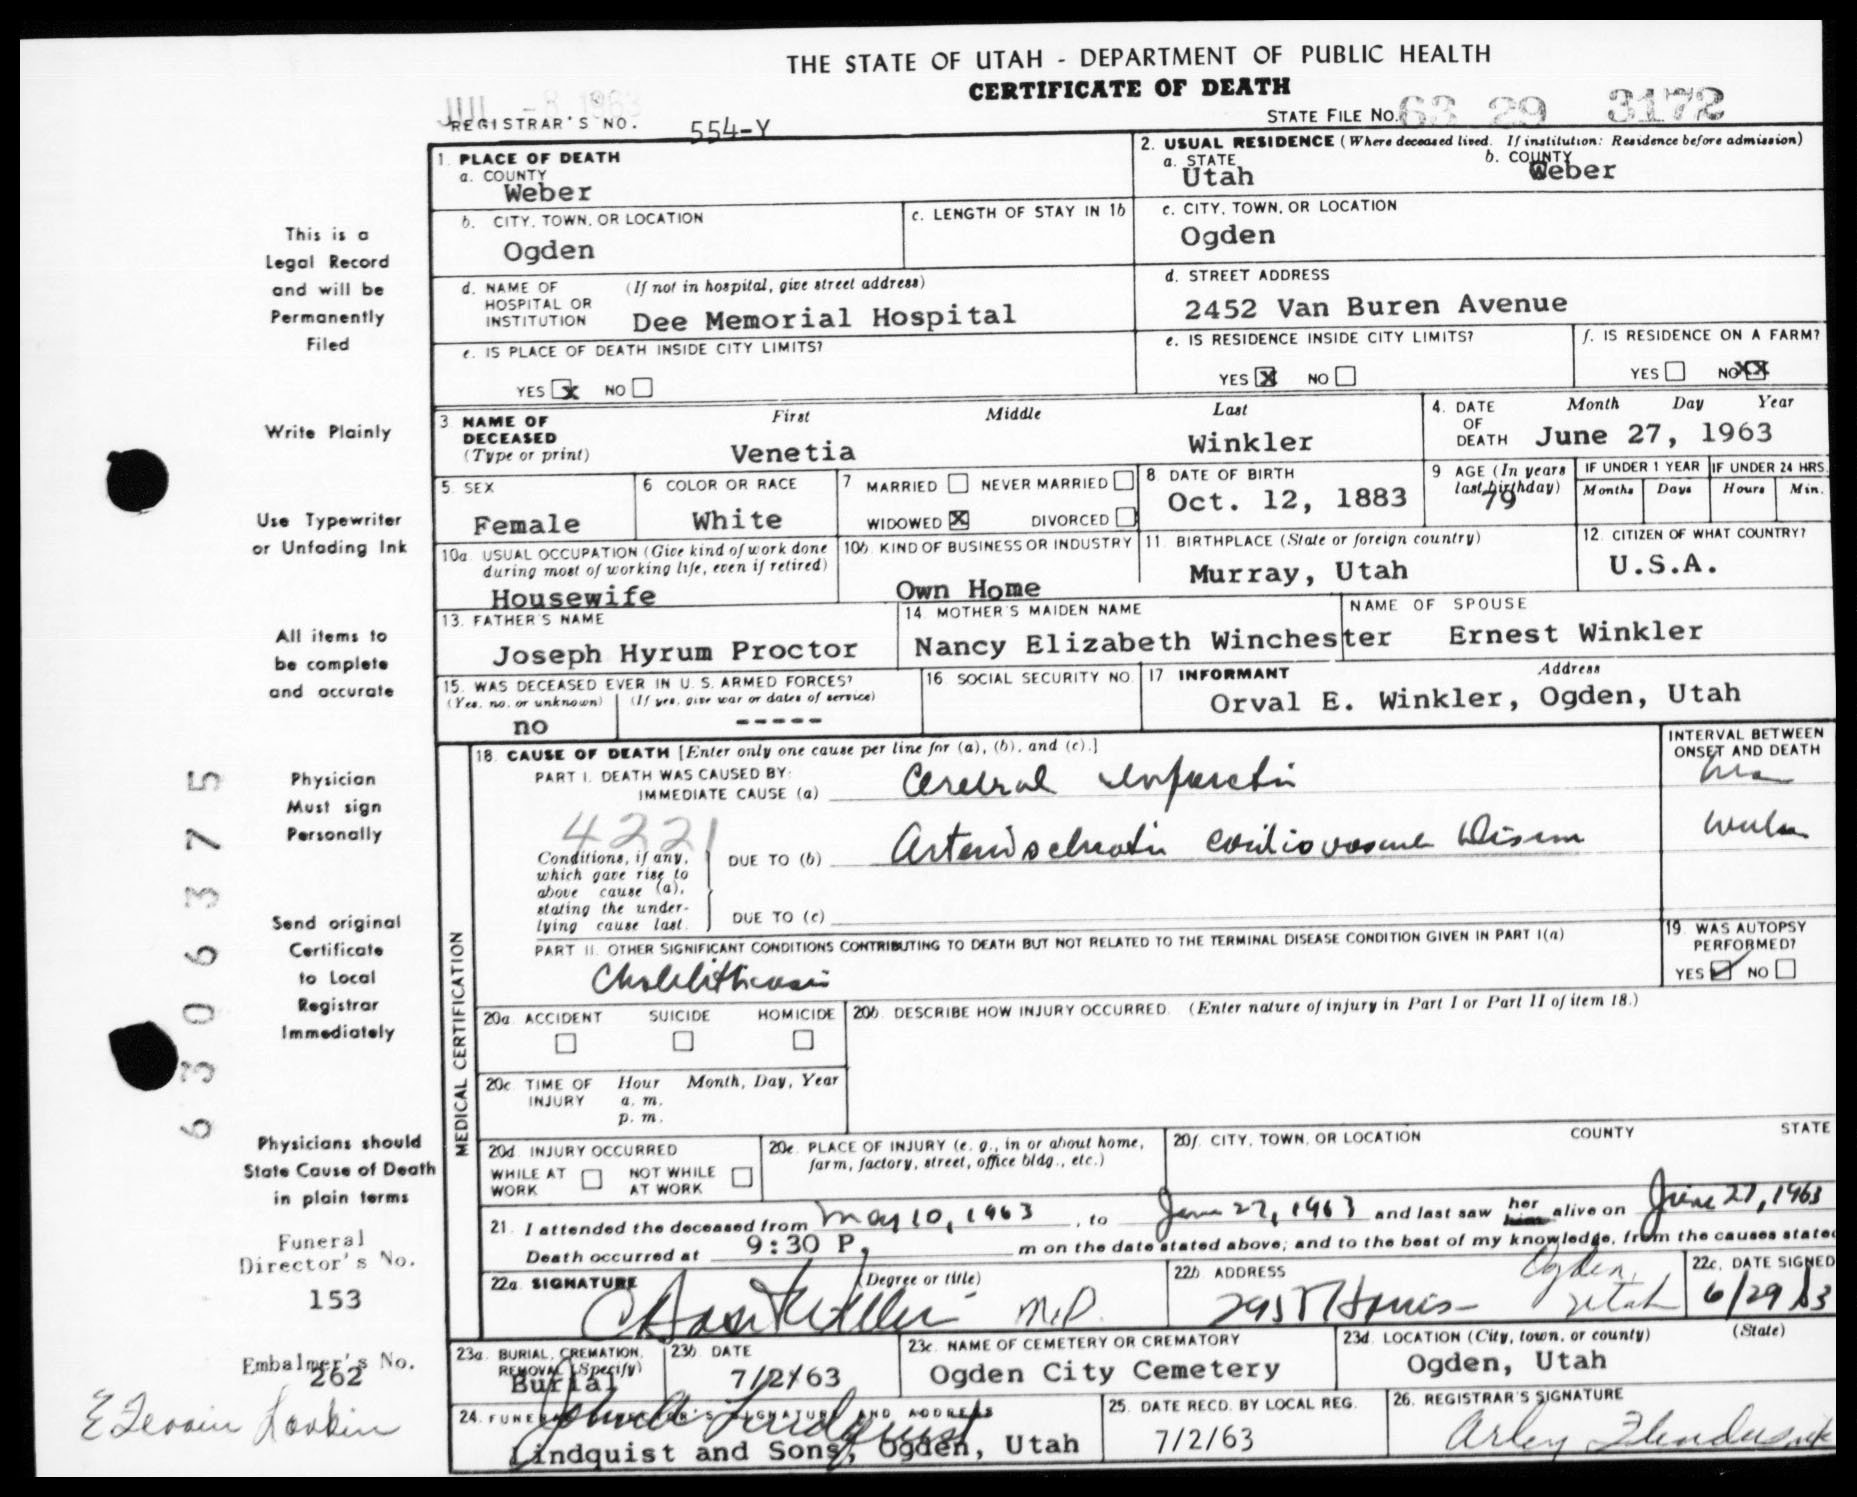 THE STATE OF UTAH - DEPARTMENT OF PUBLIC HEALTH
CERTIFICATE OF DEATH
JUL -8 1963
REGISTRAR'S NO. 554-Y
STATE FILE NO. 63 29 3172
1. PLACE OF DEATH
a. COUNTY
Weber
2. USUAL RESIDENCE (Where deceased lived. If institution: Residence before admission)
a. STATE
Utah
b. COUNTY
Weber
b. CITY, TOWN, OR LOCATION
Ogden
c. LENGTH OF STAY IN 1b
c. CITY, TOWN, OR LOCATION
Ogden
d. NAME OF HOSPITAL OR INSTITUTION (If not in hospital, give street address)
Dee Memorial Hospital
d. STREET ADDRESS
2452 Van Buren Avenue
e. IS PLACE OF DEATH INSIDE CITY LIMITS?
YES x NO
e. IS RESIDENCE INSIDE CITY LIMITS?
YES X NO
f. IS RESIDENCE ON A FARM?
YES NO XX
3 NAME OF DECEASED
(Type or print)
First Middle Last
Venetia Winkler
4. DATE OF DEATH
Month Day Year
June 27, 1963
5. SEX
Female
6 COLOR OR RACE
White
7 MARRIED NEVER MARRIED
WIDOWED X DIVORCED
8 DATE OF BIRTH
Oct. 12, 1883
9 AGE (In years last birthday)
79
IF UNDER 1 YEAR
Months Days
IF UNDER 24 HRS.
Hours Min.
10a. USUAL OCCUPATION (Give kind of work done during most of working life, even if retired)
Housewife
10b. KIND OF BUSINESS OR INDUSTRY
Own Home
11. BIRTHPLACE (State or foreign country)
Murray, Utah
12. CITIZEN OF WHAT COUNTRY?
U.S.A.
13. FATHER'S NAME
Joseph Hyrum Proctor
14. MOTHER'S MAIDEN NAME
Nancy Elizabeth Winchester
NAME OF SPOUSE
Ernest Winkler
15. WAS DECEASED EVER IN U. S. ARMED FORCES?
(Yes, no, or unknown) (If yes, give war or dates of service)
no -----
16. SOCIAL SECURITY NO.
17 INFORMANT Address
Orval E. Winkler, Ogden, Utah
MEDICAL CERTIFICATION
18. CAUSE OF DEATH [Enter only one cause per line for (a), (b), and (c).]
PART I. DEATH WAS CAUSED BY:
IMMEDIATE CAUSE (a) Cerebral infarction
INTERVAL BETWEEN ONSET AND DEATH
4221
Conditions, if any, which gave rise to above cause (a), stating the underlying cause last.
DUE TO (b) Arteriosclerotic cardiovascular Disease
DUE TO (c)
PART II. OTHER SIGNIFICANT CONDITIONS CONTRIBUTING TO DEATH BUT NOT RELATED TO THE TERMINAL DISEASE CONDITION GIVEN IN PART I(a)
Cholelithiasis
19. WAS AUTOPSY PERFORMED?
YES NO
20a. ACCIDENT SUICIDE HOMICIDE
20b. DESCRIBE HOW INJURY OCCURRED. (Enter nature of injury in Part I or Part II of item 18.)
20c. TIME OF INJURY
Hour Month, Day, Year
a. m.
p. m.
20d. INJURY OCCURRED
WHILE AT WORK NOT WHILE AT WORK
20e. PLACE OF INJURY (e. g., in or about home, farm, factory, street, office bldg., etc.)
20f. CITY, TOWN, OR LOCATION COUNTY STATE
21. I attended the deceased from May 10, 1963, to June 27, 1963 and last saw her him alive on June 27, 1963
Death occurred at 9:30 P. m on the date stated above; and to the best of my knowledge, from the causes stated
22a. SIGNATURE (Degree or title)
M.D.
22b. ADDRESS
Ogden, Utah
22c. DATE SIGNED
6/29/63
23a. BURIAL, CREMATION, REMOVAL (Specify)
Burial
23b. DATE
7/2/63
23c. NAME OF CEMETERY OR CREMATORY
Ogden City Cemetery
23d. LOCATION (City, town, or county) (State)
Ogden, Utah
24. FUNERAL DIRECTOR'S SIGNATURE AND ADDRESS
Lindquist and Sons, Ogden, Utah
25. DATE RECD. BY LOCAL REG.
7/2/63
26. REGISTRAR'S SIGNATURE
This is a
Legal Record
and will be
Permanently
Filed
Write Plainly
Use Typewriter
or Unfading Ink
All items to
be complete
and accurate
Physician
Must sign
Personally
Send original
Certificate
to Local
Registrar
Immediately
Physicians should
State Cause of Death
in plain terms
Funeral
Director's No.
153
Embalmer's No.
262
6306375